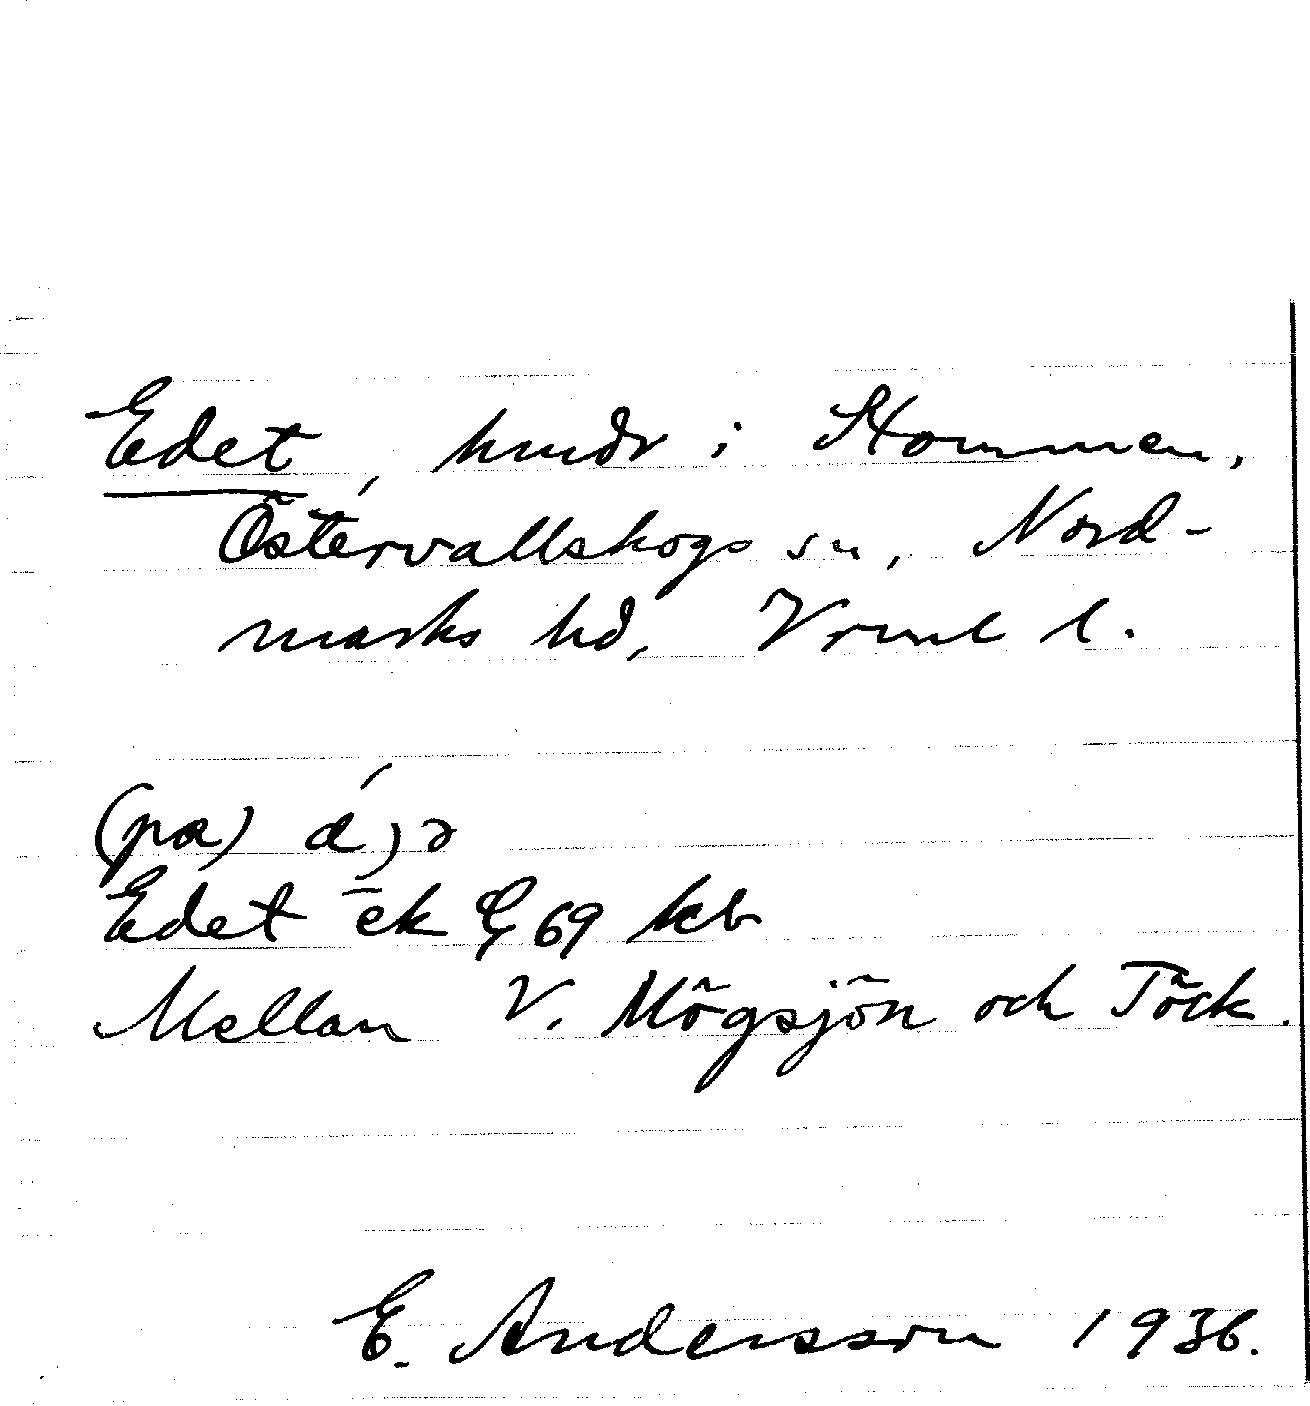 Edet, hmdr i Stommen,
Östervallskogs sn, Nord-
marks hd, Vrml l.
(pa)
Edet ek 69 kb
Mellan V. Mögsjön och Töck.
E. Andersson 1936.